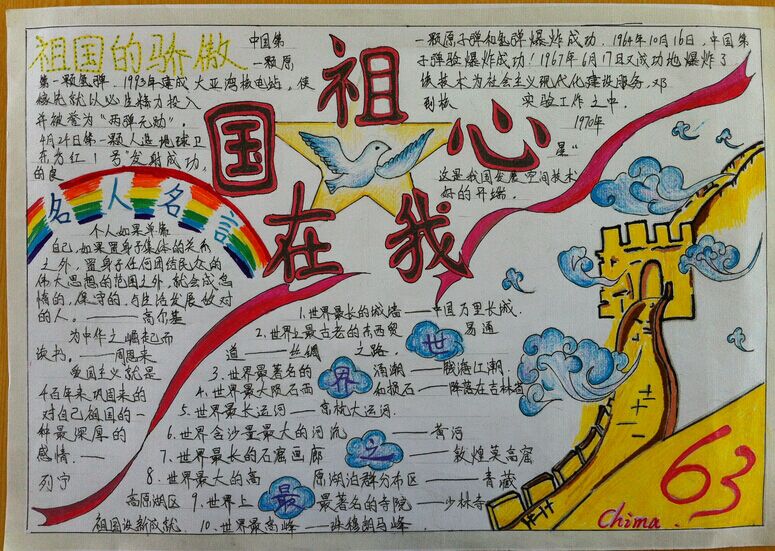 祖国的骄傲
中国第
一颗原
一颗原子弹和氢弹爆炸成功．1964年10月16日，中国第
子弹验爆炸成功！1967年6月17日又成功地爆炸了
该技术为社会主义现代化建设服务，邓
实验工作之中．
1970年
星"
这是我国发展空间技术
好的开端．
第一颗氢弹．1993年建成大亚湾核电站，使
稼先就以必生精力投入
并被誉为"两弹元勋"．
4月24日第一颗人造地球卫
东方红1号"发射成功，
的良
祖
国
心
在
我
名人名言
个人如果单靠
自己，如果置身于集体的关系
之外，置身于任何团结民众的
伟大思想的范围之外，就会成怠
惰的，保守的，与生活发展敌对
的人。——高尔基
为中华之崛起而
读书。——周恩来
爱国主义就是
千百年来巩固来的
对自己祖国的一
种最深厚的
感情．——
列宁
1．世界最长的城墙——中国万里长城．
2．世界上最古老的东西贸 易通
道——丝绸 之路．
3．世界最著名的 涌潮——钱海江潮
4．世界最大陨石雨 和损石——降落在吉林省
5．世界最长运河——京杭大运河．
6．世界含沙量最大的河流——黄河
7．世界最长的石窟画廊——敦煌莫高窟
8．世界最大的高 原湖泊群分布区——青藏
高原湖区 9．世界上 最著名的寺院——少林寺
祖国的新成就 10．世界最高峰——珠穆朗马峰．
世
界
之
最
63
China．